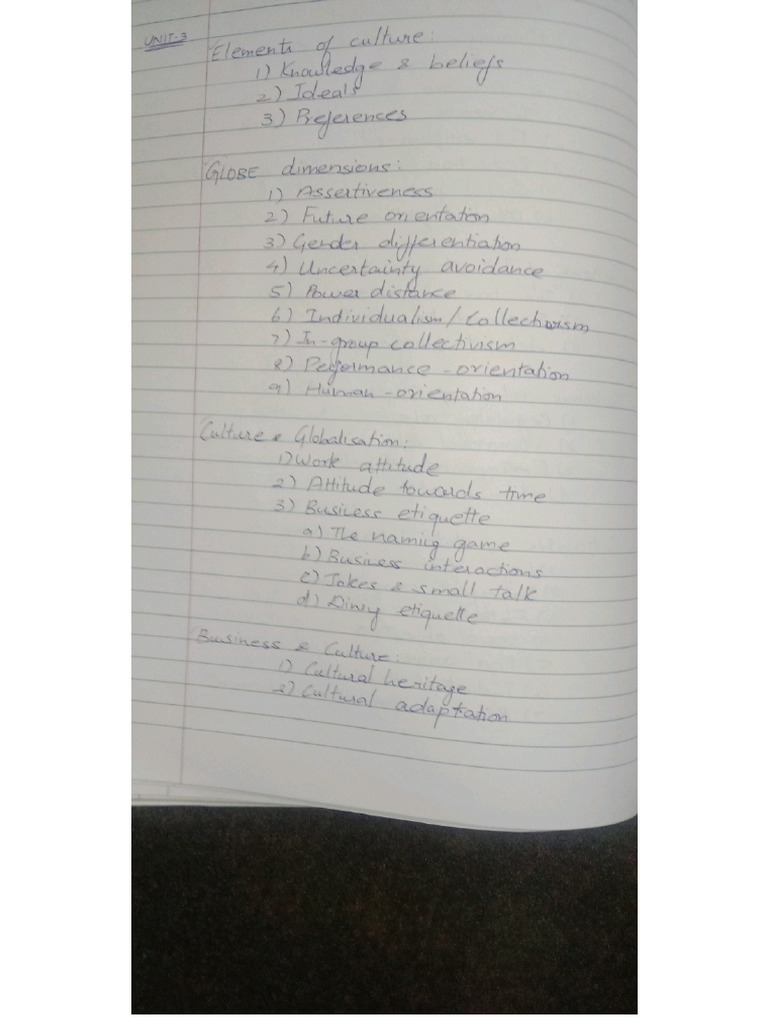 UNIT-3
Elements of culture:
1) Knowledge & beliefs
2) Ideals
3) Preferences
GLOBE dimensions:
1) Assertiveness
2) Future orientation
3) Gender differentiation
4) Uncertainty avoidance
5) Power distance
6) Individualism/Collectivism
7) In-group collectivism
8) Performance-orientation
9) Human-orientation
Culture & Globalisation:
1) Work attitude
2) Attitude towards time
3) Business etiquette
a) The naming game
b) Business interactions
c) Jokes & small talk
d) etiquette
Business & Culture:
1) Cultural heritage
2) Cultural adaptation